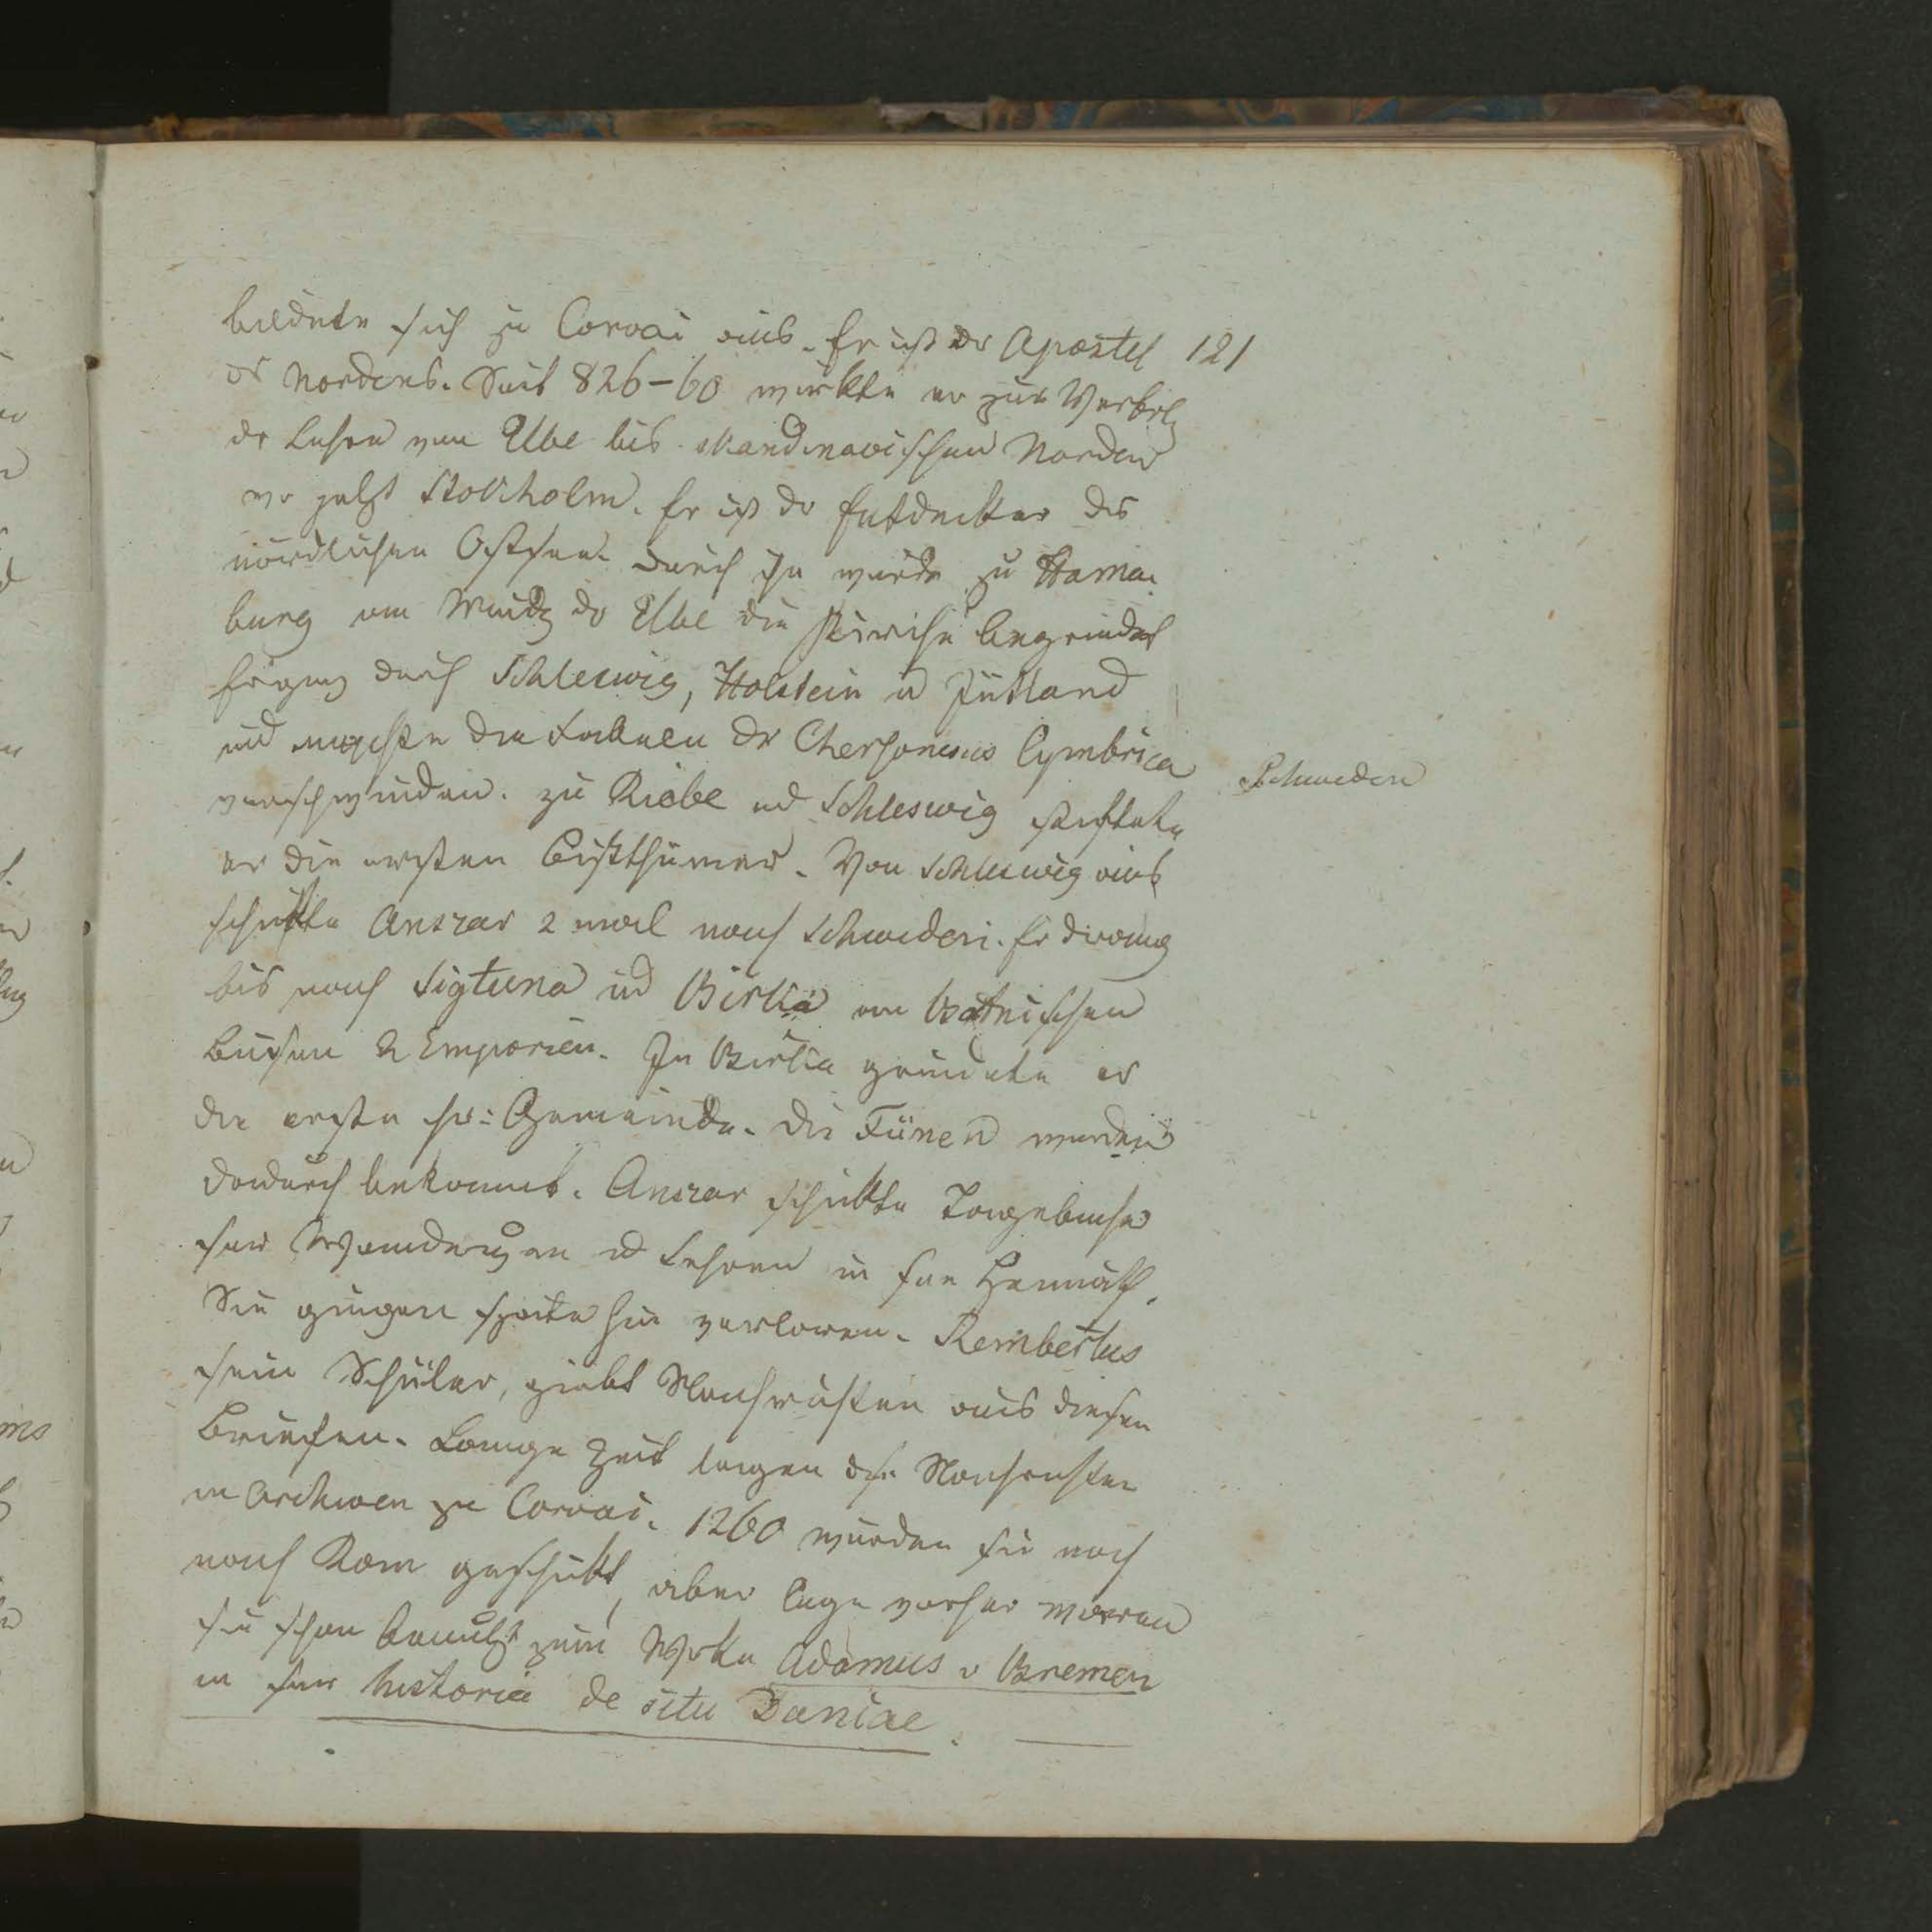 bildete sich zu Corvai aus. Er ist der Apostel 121
ds Nordens. Seit 826-60 wirkte er zur Verbrtg
dr Lehre von Elbe bis skandinavischen Norden
wo jetzt Stokholm. Er ist dr Entdekker des
nördlichen Ostsee. Durch ihn wurde zu Hama-
burg am Mündg dr Elbe die Kirche begründet
Er ging durch Schleswig, Holstein u Jütland
und machte die Fabeln dr Chersonesus Cymbrica
verschwinden. zu Riebe und Schleswig stiftete
Schweden
er die ersten Bistthümer. Von Schleswig aus
schiffte Anscar 2 mal nach Schweden. Er drang
bis nach Sigtuna ud Birka am Botnischen
Busen 2 Emporien. In Birka gründete er
die erste chr: Gemeinde. Die Fünen wurden
dadurch bekannt. Anscar schikte Tagebücher
sr Wanderungen ud Lehren in sne Heimath.
Sie gingen späterhin verloren. Rembertus
sein Schüler, giebt Nachrichten aus diesen
Briefen. Lange Zeit lagen dse Nachrichten
in Archiven zu Corvai. 1260 wurden sie noch
nach Rom geschikt, aber lange vorher waren
sie schon benutzt zum Werke Adamus v Bremen
in sr historia de situ Daniae.